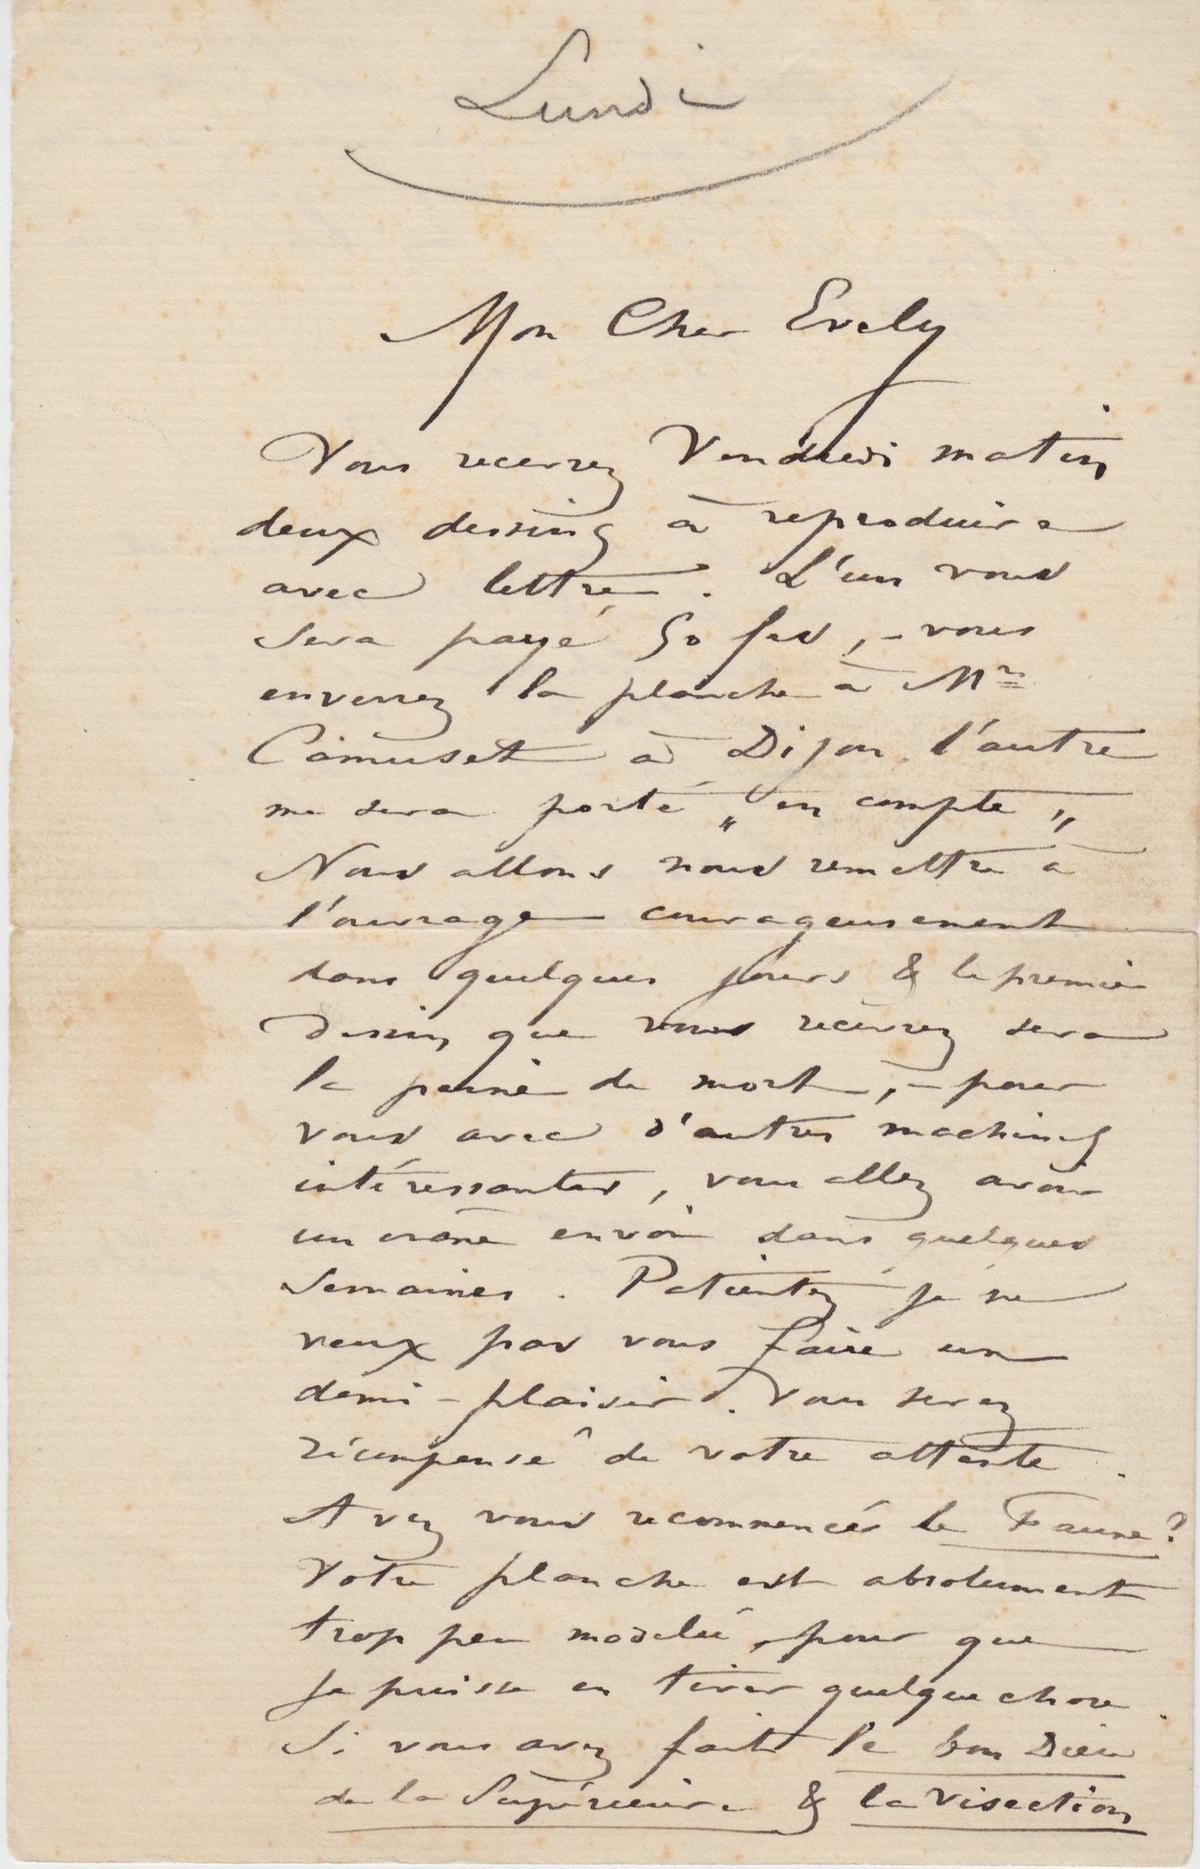 Lundi
Mon Cher Evely
Vous recevrez Vendredi matin
deux dessins à reproduire
avec lettre. L'un vous
sera payé 50 frs, – vous
enverrez la planche à Mr
Camuset à Dijon, l'autre
me sera porté „ en compte „
Nous allons nous remettre à
l'ouvrage courageusement
dans quelques jours & le premier
dessin que vous recevrez sera
la peine de mort, – pour
vous avec d'autres machines
intéressantes, vous allez avoir
un crâne envoi dans quelques
semaines. Patientez je ne
veux pas vous faire un
demi-plaisir. Vous serez
récompensé de votre attente.
Avez vous recommencé le Faune?
Votre planche est absolument
trop peu modelée, pour que
je puisse en tirer quelque chose.
Si vous avez fait le bon Dieu
de la Supérieure & la Visection